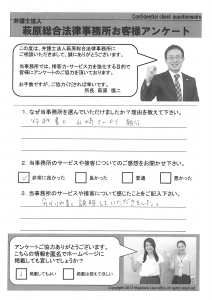 Confidential client questionnaire
弁護士法人
萩原総合法律事務所お客様アンケート
この度は、弁護士法人萩原総合法律事務所に
ご相談いただきまして、誠にありがとうございます。
当事務所では、接客力・サービス力を強化する目的で
皆様にアンケートのご協力を頂いております。
お手数ですが、ご協力くだされば幸いです。
所長 萩原 慎二
1. なぜ当事務所を選んでいただけましたか?理由を教えて下さい。
行政書士 山崎さんより 紹介
2. 当事務所のサービスや接客についてのご感想をお聞かせ下さい。
非常に良かった 良かった 普通 悪かった
3. 当事務所のサービスや接客について感じたことをご記入下さい。
説明していただきました。
アンケートご協力ありがとうございます。
こちらの情報を匿名でホームページに
掲載しても宜しいでしょうか?
掲載してもよい 掲載は控えてほしい
Copyright 2012 Hagiwara Law office. All rights reserved.